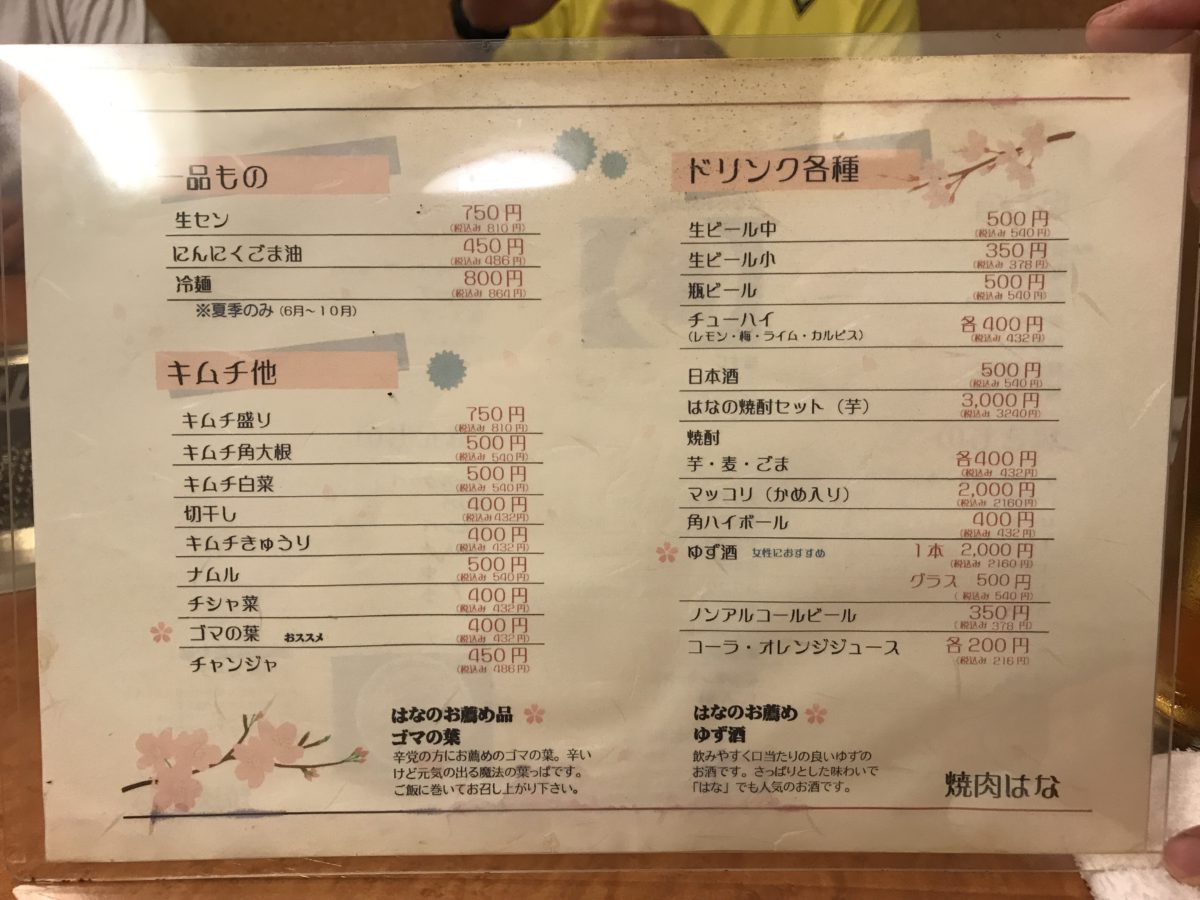 一品もの
生セン 750円
(税込み 810円)
にんにくごま油 450円
(税込み 486円)
冷麺 800円
(税込み 864円)
※夏季のみ(6月~10月)
キムチ他
キムチ盛り 750円
(税込み 810円)
キムチ角大根 500円
(税込み 540円)
キムチ白菜 500円
(税込み 540円)
切干し 400円
(税込み 432円)
キムチきゅうり 400円
(税込み 432円)
ナムル 500円
(税込み 540円)
チシャ菜 400円
(税込み 432円)
ゴマの葉 おススメ 400円
(税込み 432円)
チャンジャ 450円
(税込み 486円)
はなのお薦め品
ゴマの葉
辛党の方にお薦めのゴマの葉。辛い
けど元気の出る魔法の葉っぱです。
ご飯に巻いてお召し上がり下さい。
ドリンク各種
生ビール中 500円
(税込み 540円)
生ビール小 350円
(税込み 378円)
瓶ビール 500円
(税込み 540円)
チューハイ 各400円
(レモン・梅・ライム・カルピス) (税込み 432円)
日本酒 500円
(税込み 540円)
はなの焼酎セット(芋) 3,000円
(税込み 3240円)
焼酎
芋・麦・ごま 各400円
(税込み 432円)
マッコリ(かめ入り) 2,000円
(税込み 2160円)
角ハイボール 400円
(税込み 432円)
ゆず酒 女性におすすめ 1本 2,000円
(税込み 2160円)
グラス 500円
(税込み 540円)
ノンアルコールビール 350円
(税込み 378円)
コーラ・オレンジジュース 各200円
(税込み 216円)
はなのお薦め
ゆず酒
飲みやすく口当たりの良いゆずの
お酒です。さっぱりとした味わいで
「はな」でも人気のお酒です。
焼肉はな